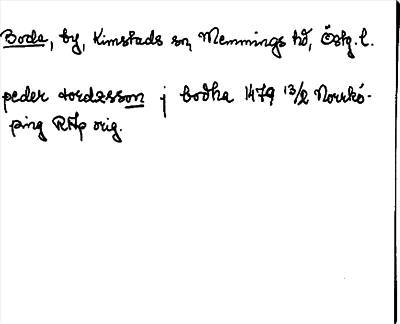 Boda, by, Kimstads sn, Memmings hd, Östg. l.
peder tordæsson j bodha 1479 13/2 Norrkö-
ping RAp orig.